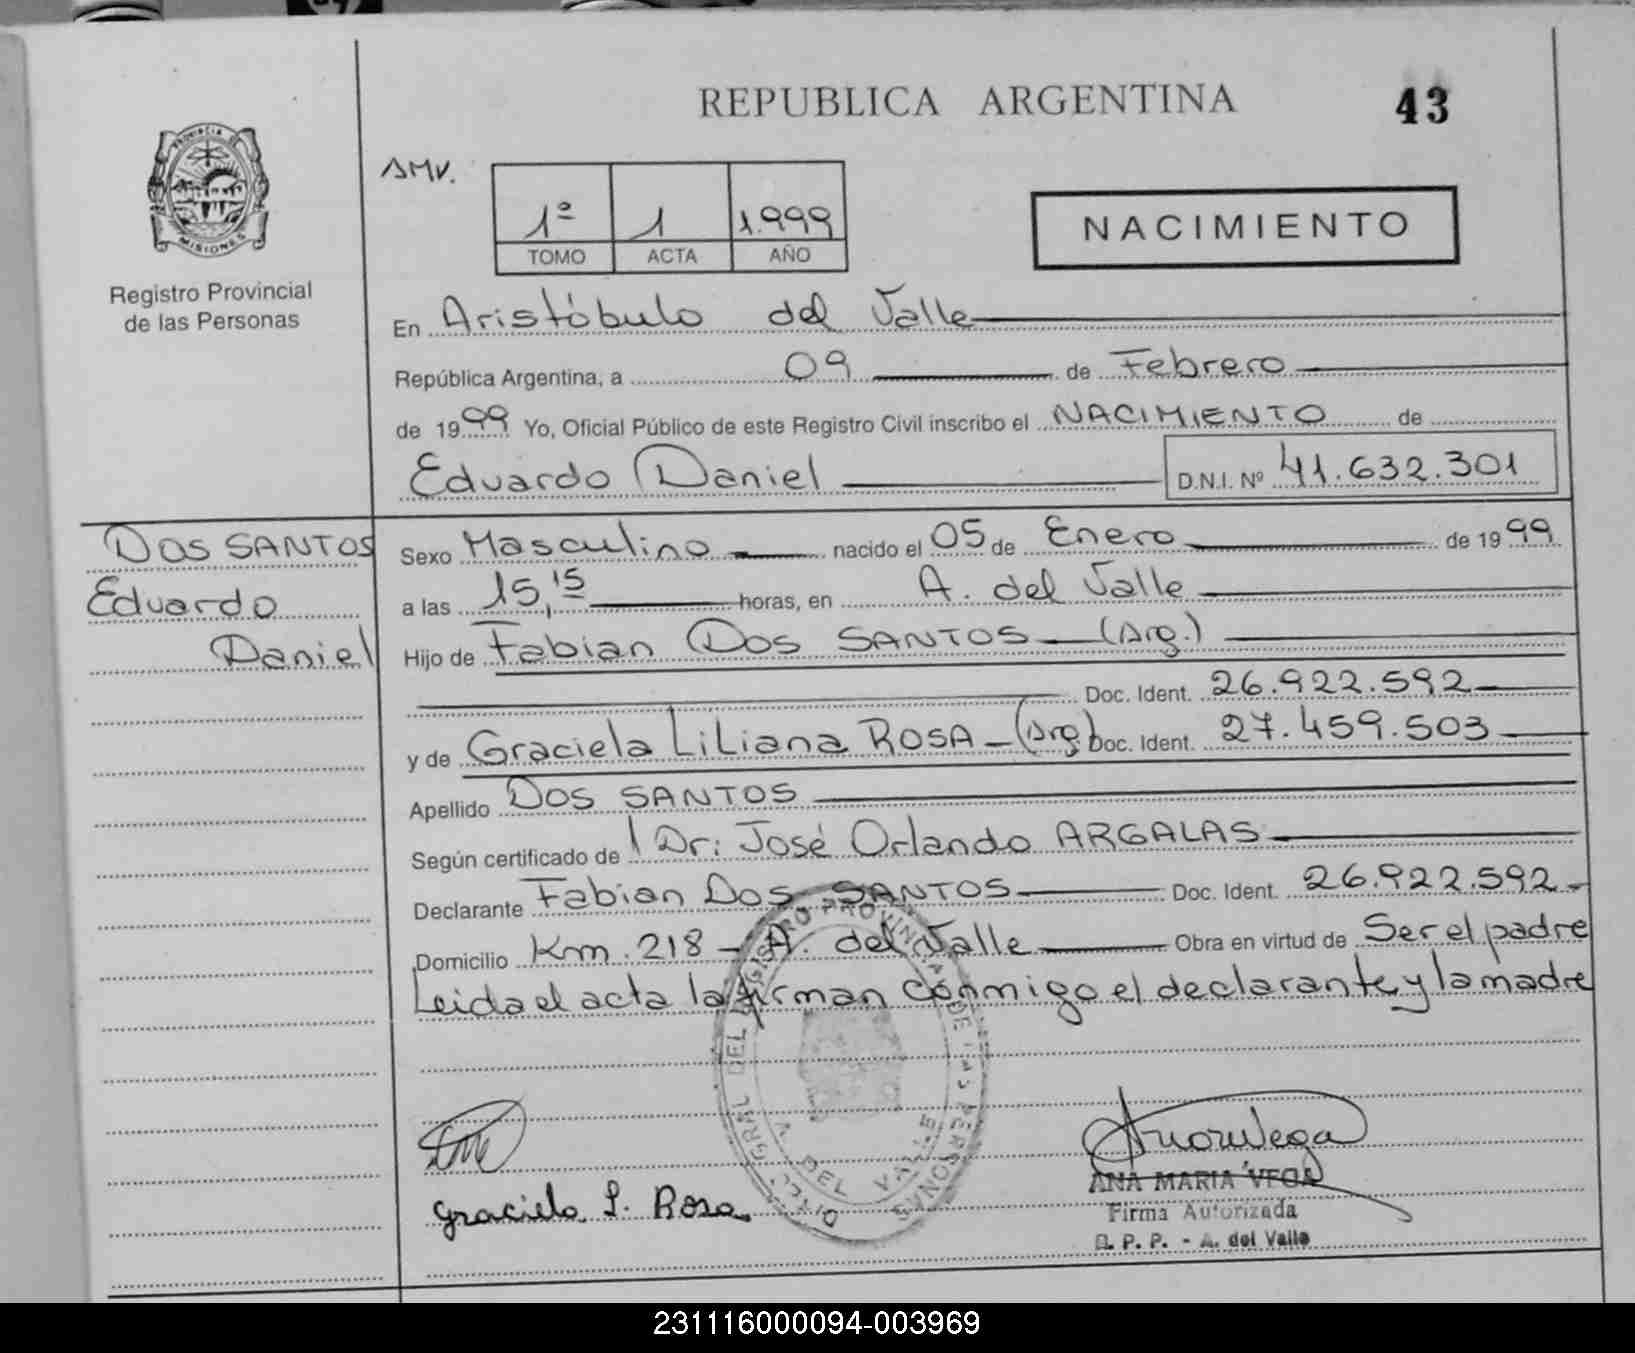 REPUBLICA ARGENTINA
43
PROVINCIA DE
MISIONES
Registro Provincial
de las Personas
AMV.
1º 1 1.999
TOMO ACTA AÑO
NACIMIENTO
En Aristóbulo del Valle
República Argentina, a 09 de Febrero
de 1999 Yo, Oficial Público de este Registro Civil inscribo el NACIMIENTO de
Eduardo Daniel D.N.I. Nº 41.632.301
DOS SANTOS
Eduardo
Daniel
Sexo Masculino nacido el 05 de Enero de 1999
a las 15,15 horas, en A. del Valle
Hijo de Fabian DOS SANTOS - (Arg.)
Doc. Ident. 26.922.592
y de Graciela Liliana ROSA - (Arg) Doc. Ident. 27.459.503
Apellido DOS SANTOS
Según certificado de Dr: José Orlando ARGALAS
Declarante Fabian DOS SANTOS Doc. Ident. 26.922.592
Domicilio Km. 218 - A. del Valle Obra en virtud de Ser el padre
Leida el acta la firman conmigo el declarante y la madre
REGISTRO PROVINCIAL DE LAS PERSONAS
DEL VALLE
Graciela L. Rosa
ANA MARIA VEGA
Firma Autorizada
R. P. P. - A. del Valle
231116000094-003969